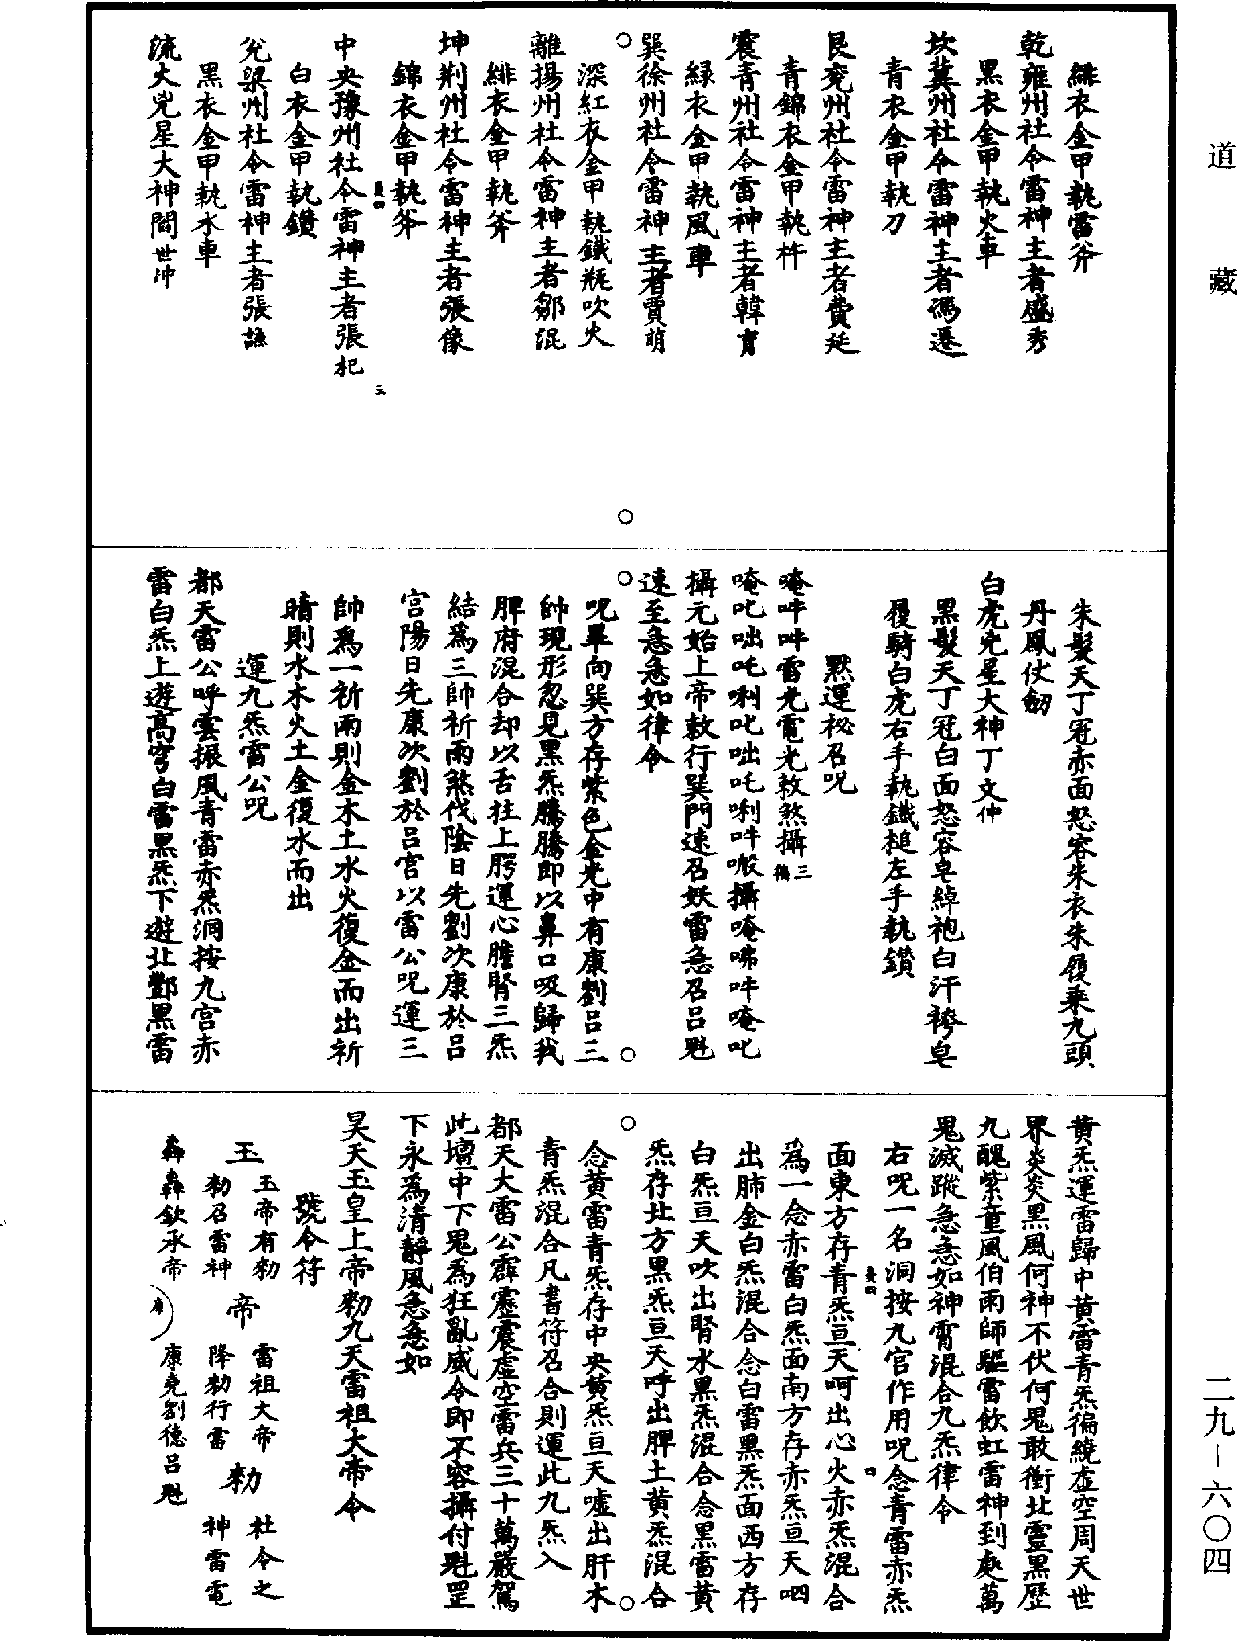 道藏
緋衣金甲執雷斧
乾雍州社令雷神主者盛秀
黑衣金甲執火車
坎冀州社令雷神主者馮遷
青衣金甲執刀
艮兗州社令雷神主者費延
青錦衣金甲執杵
震青州社令雷神主者韓育
綠衣金甲執風車
巽徐州社令雷神主者賈萌
深紅衣金甲執鐵瓶吹火
離揚州社令雷神主者鄒混
緋衣金甲執斧
坤荆州社令雷神主者張像
錦衣金甲執斧
中央豫州社令雷神主者張杞
白衣金甲執鑽
兌梁州社令雷神主者張謙
黑衣金甲執水車
流火兇星大神閻世沖
朱髮天丁冠赤面怒容朱衣朱履乘九頭
丹鳳仗劒
白虎兇星大神丁文仲
黑髮天丁冠白面怒容皂綽袍白汗袴皂
履騎白虎右手執鐵槌左手執鑽
默運祕召呪
唵吽吽雷光電光敕煞攝三徧
唵叱咄吒唎叱咄吒唎吽嚫攝唵咈吽唵叱
攝元始上帝敕行巽門速召妖雷急召呂魁
速至急急如律令
呪畢向巽方存紫色金光中有康劉呂三
帥現形忽見黑炁騰騰即以鼻口吸歸我
脾府混合却以舌拄上腭運心膽腎三炁
結爲三帥祈雨煞伐陰日先劉次康於呂
宮陽日先康次劉於呂宮以雷公呪運三
帥爲一祈雨則金木土水火復金而出祈
晴則水木火土金復水而出
運九炁雷公呪
都天雷公呼雲掁風青雷赤炁洞按九宮赤
雷白炁上遊高穹白雷黑炁下遊北酆黑雷
黃炁運雷歸中黃雷青炁徧繞虛空周天世
界炎炎黑風何神不伏何鬼敢衝北靈黑歷
九醜紫童風伯雨師驅雷飲虹雷神到處萬
鬼滅蹤急急如神霄混合九炁律令
右呪一名洞按九宮作用呪念青雷赤炁
面東方存青炁亘天呵出心火赤炁混合
爲一念赤雷白炁面南方存赤炁亘天呬
出肺金白炁混合念白雷黑炁面西方存
白炁亘天吹出腎水黑炁混合念黑雷黃
炁存北方黑炁亘天呼出脾土黃炁混合
念黃雷青炁存中央黃炁亘天噓出肝木
青炁混合凡書符召合則運此九炁入
都天大雷公霹靂震虛空雷兵三十萬嚴駕
此壇中下鬼爲狂亂威令即不容攝付魁罡
下永爲清靜風急急如
昊天玉皇上帝勑九天雷祖大帝令
號令符
玉
玉帝有勑
勑召雷神
轟轟欽承帝
帝
雷祖大帝
降勑行雷
康堯劉德呂魁
勑
社令之
神雷電
二九-六〇四